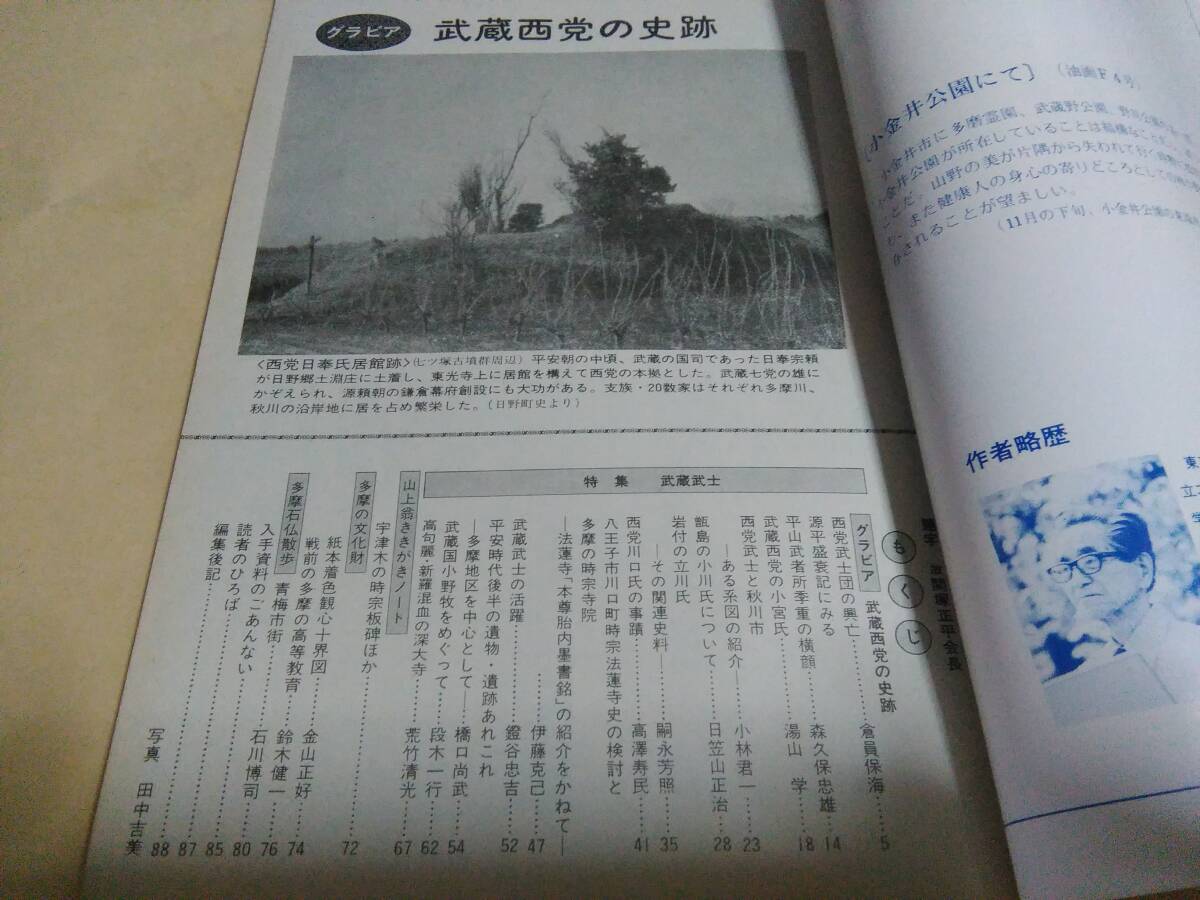 グラビア 武蔵西党の史跡
〈西党日奉氏居館跡〉(七ツ塚古墳群周辺) 平安朝の中頃、武蔵の国司であった日奉宗頼
が日野郷土淵庄に土着し、東光寺上に居館を構えて西党の本拠とした。武蔵七党の雄に
かぞえられ、源頼朝の鎌倉幕府創設にも大功がある。支族・20数家はそれぞれ多摩川、
秋川の沿岸地に居を占め繁栄した。(日野町史より)
もくじ
正平・会長
特集 武蔵武士
グラビア 武蔵西党の史跡
西党武士団の興亡………倉員保海…5
源平盛衰記にみる
平山武者所季重の横顔……森久保忠雄…14
武蔵西党の小宮氏……湯山 学…18
西党武士と秋川市
―ある系図の紹介―……小林君一…23
甑島の小川氏について……日笠山正治…28
岩付の立川氏
―その関連史料―……嗣永芳照…35
西党川口氏の事蹟……高澤寿民…41
八王子市川口町時宗法蓮寺史の検討と
多摩の時宗寺院
―法蓮寺「本尊胎内墨書銘」の紹介をかねて―
……伊藤克己…47
武蔵武士の活躍……鐙谷忠吉…52
平安時代後半の遺物・遺跡あれこれ
―多摩地区を中心として―……橋口尚武…54
武蔵国小野牧をめぐって……段木一行…62
高句麗、新羅混血の深大寺……荒竹清光…67
山上翁ききがきノート
宇津木の時宗板碑ほか……72
多摩の文化財
紙本着色観心十界図……金山正好…74
戦前の多摩の高等教育……鈴木健一…76
多摩石仏散歩 青梅市街……石川博司…80
入手資料のごあんない……85
読者のひろば……87
編集後記……88
写真 田中吉美
[小金井公園にて] (油画F4号)
小金井市に多磨霊園、武蔵野公園、
金井公園が所在していることは
ことだ。山野の美が片隅から失われて行く
、また健康人の身心の寄りどころとして
されることが望ましい。
(11月の下旬、小金井公園
作者略歴
東
立
学